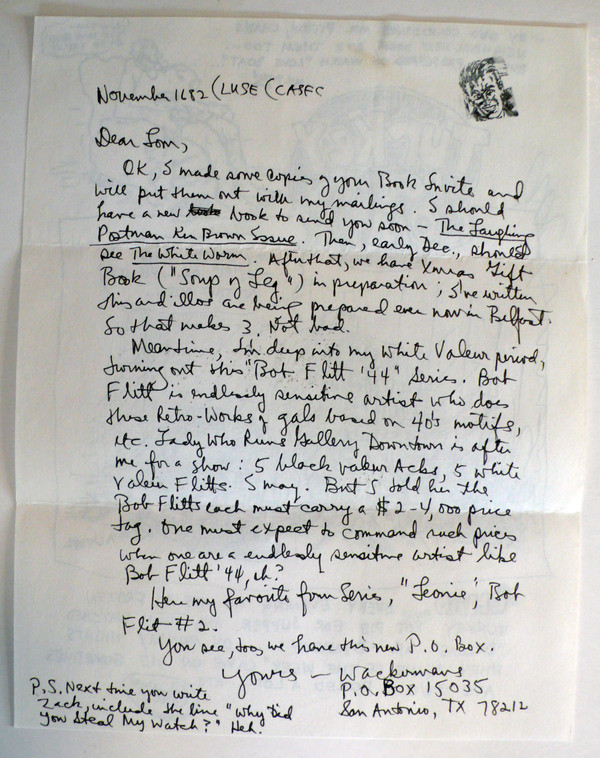 November 16 82 (LUSE (CASEC
Dear Tom,
OK, I made some copies of your Book Invite and
will put them out with my mailings. I should
have a new book to send you soon — The Laughing
Postman Ken Brown Issue. Then, early Dec., should
see The White Worm. After that, we have Xmas Gift
Book ("Soup of Leg") in preparation; I've written
this and illos are being prepared even now in Belfast.
So that makes 3. Not bad.
Meantime, I'm deep into my white Valeur period,
turning out this "Bob Flitt '44" Series. Bob
Flitt is endlessly sensitive artist who does
these Retro-Works of gals based on 40's motifs,
etc. Lady Who Runs Gallery Downtown is after
me for a show: 5 black valeur Acks, 5 white
Valeur Flitts. I may. But I told her the
Bob Flitts each must carry a $2-4,000 price
tag. One must expect to command such prices
when one are a endlessly sensitive artist like
Bob Flitt '44, eh?
Here my favorite from Series, "Leonie", Bob
Flitt #2.
You see, too, we have this new P.O. Box.
Yours — Wackerman
P.O. Box 15035
San Antonio, TX 78212
P.S. Next time you write
Zack, include the line "Why Did
You Steal My Watch?" Heh.